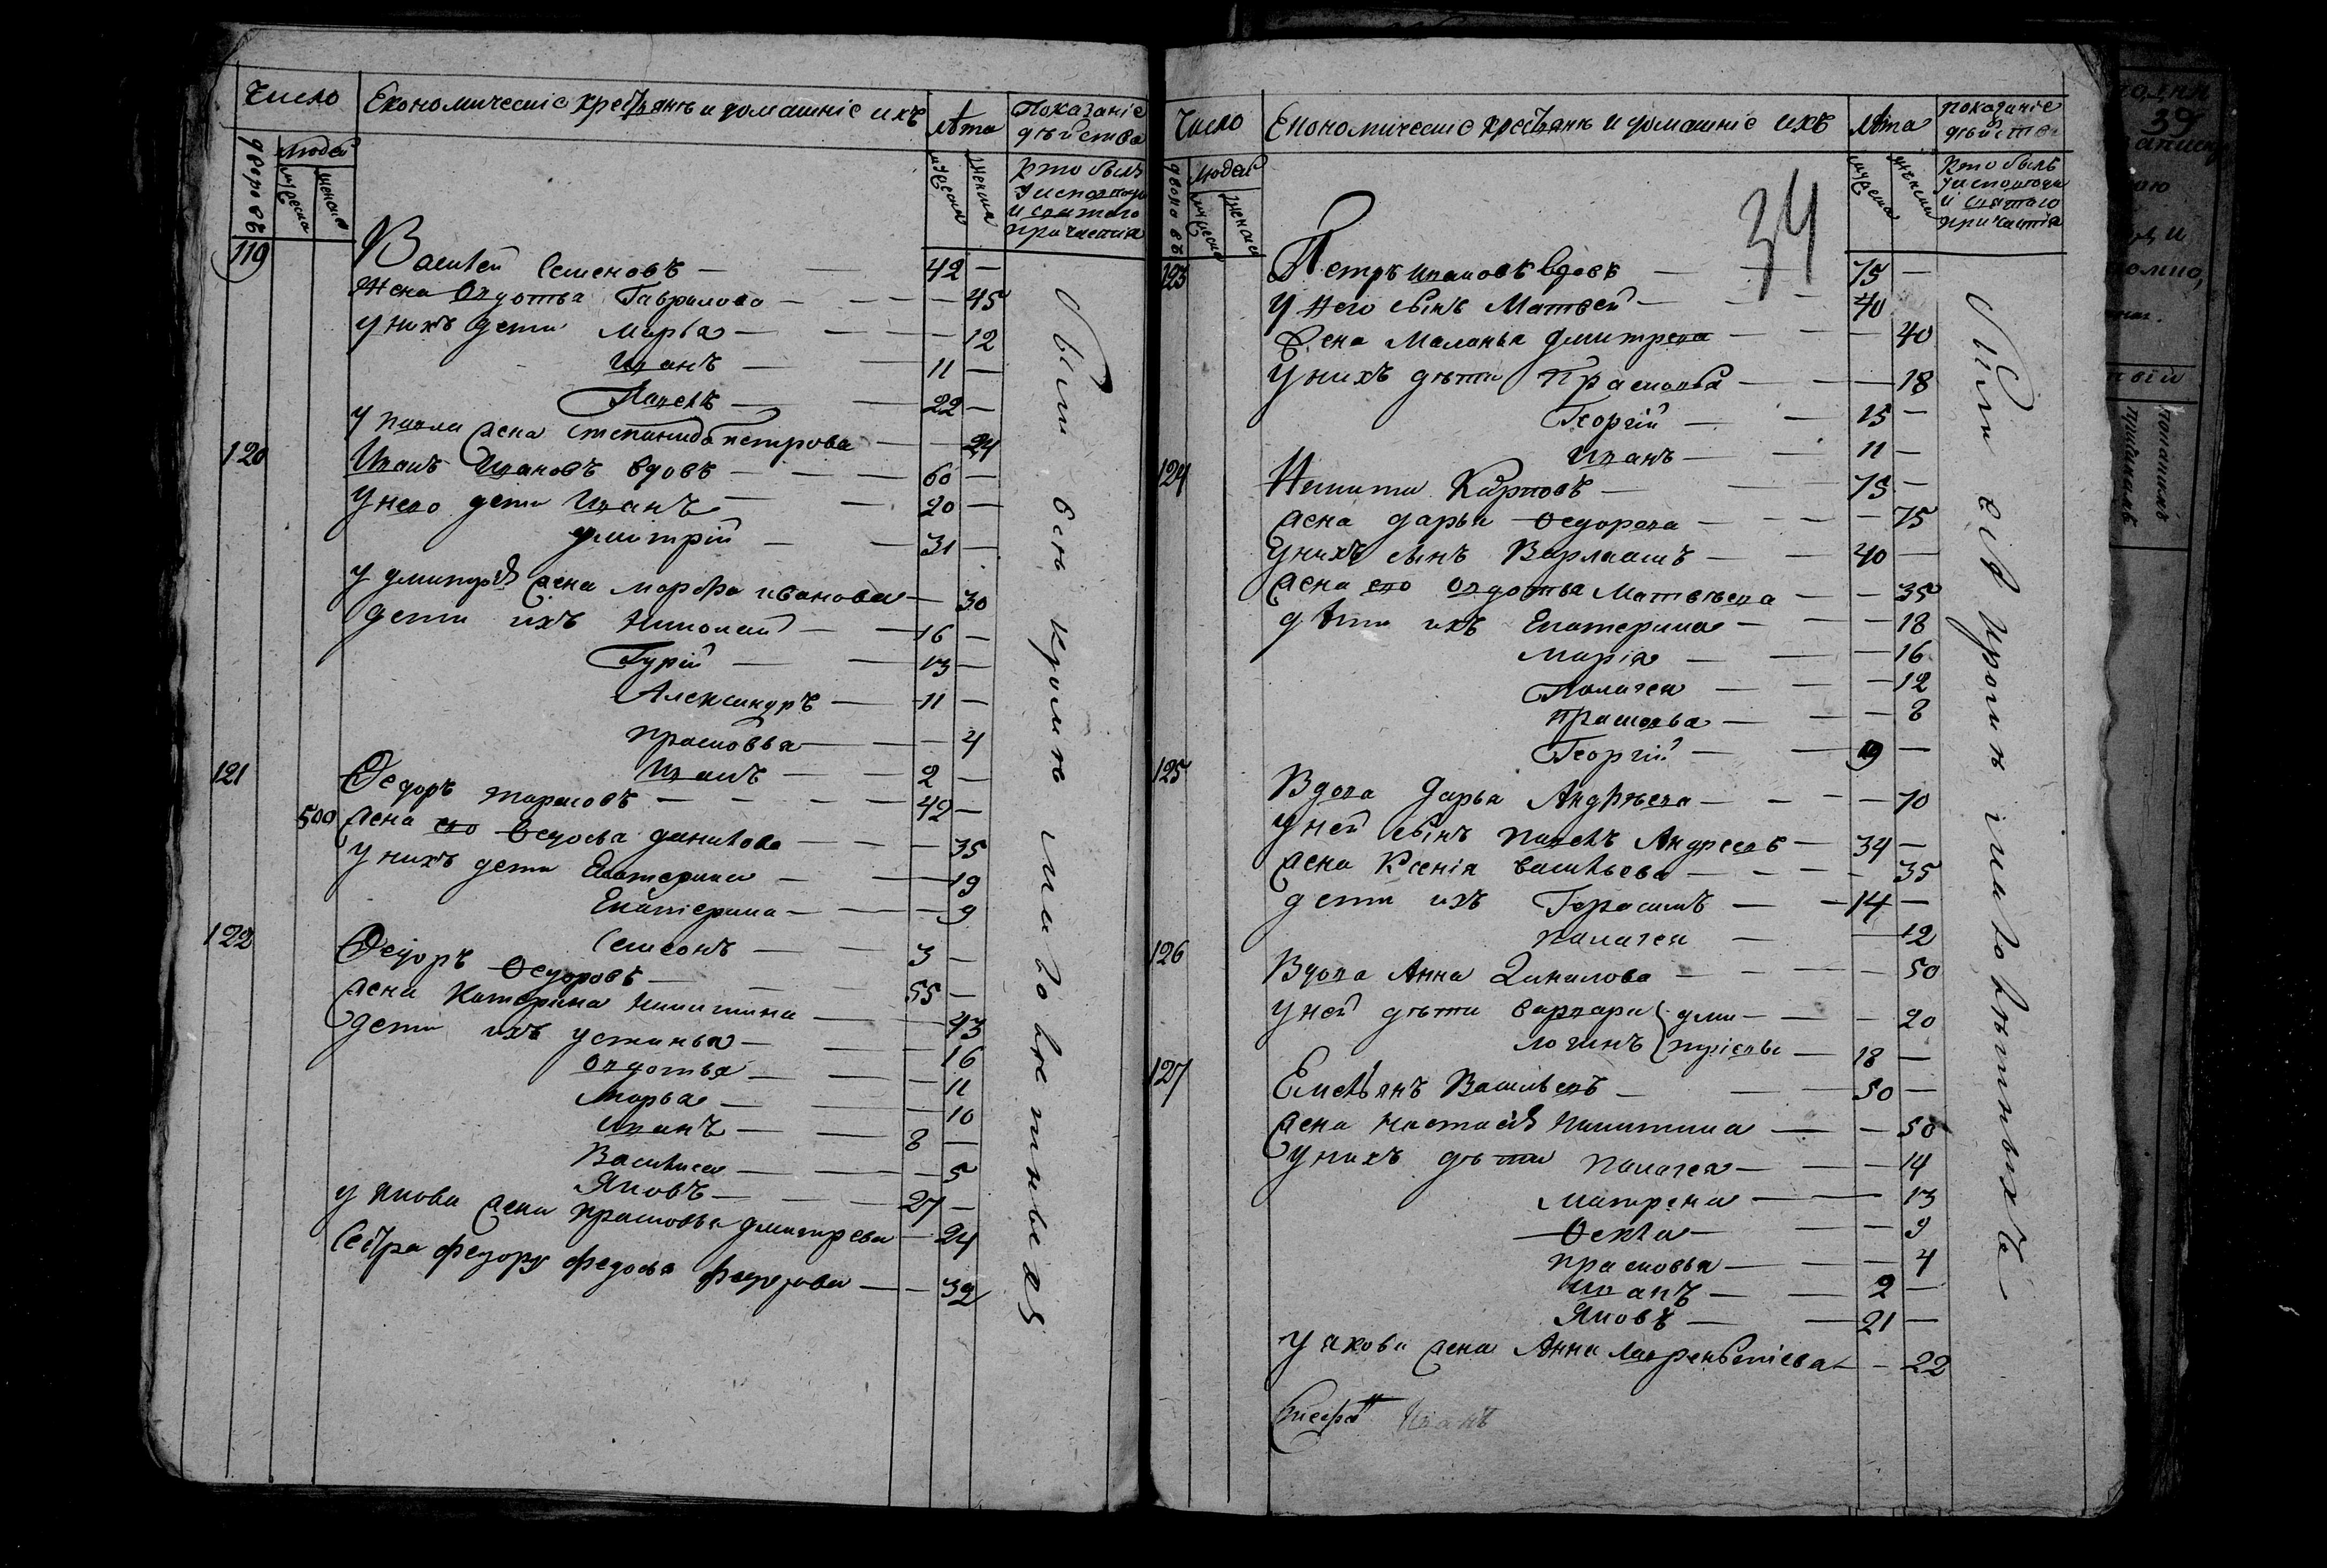 Число Економическіе крестьянъ и домашніе ихъ лѣта Показаніе дѣйства
дворовъ людей мужеска женска мужеска женска кто былъ у исповеди и святаго причастія
119 Василей Семеновъ — 42 —
Жена Овдотья Гаврилова — — 45
у нихъ дети Марья — — 12
Иванъ — 11 —
Павелъ — 22 —
у павла жена степанида петрова — — 24
120 Иванъ Ивановъ вдовъ — 60 —
у него дети Иванъ — 20 —
дмитрій — 31 —
у дмитрія жена марфа иванова — 30
дети ихъ Николай — 16 —
Гурій — 13 —
Александръ — 11 —
прасковья — — 4
Иванъ — 2 —
121 Ѳедоръ тарасовъ — 42 —
500 жена ево Ѳедосья данилова — — 35
у нихъ дети Екатерина — — 19
Екатерина — — 9
Семеонъ — 3 —
122 Ѳедоръ Ѳедоровъ — 55 —
жена Катерина никитина — — 43
дети ихъ устинья — — 16
овдотья — — 11
Марья — — 10
иванъ — 8 —
Василиса — — 5
Яковъ — 27 —
у якова жена прасковья дмитрева — 24
Сестра федору федосья федорова — — 32
были всѣ кромѣ малолетныхъ
Число Економическіе крестьянъ и домашніе ихъ лѣта показаніе дѣйства
дворовъ людей мужеска женска мужеска женска кто былъ у исповеди и святаго причастія
34
123 Петръ ивановъ вдовъ — 75 —
у него сынъ Матвей — 40
Жена Маланья дмитрева — — 40
у нихъ дѣти Прасковья — — 18
Георгій — 15 —
Иванъ — 11 —
124 Никита Карповъ — 75 —
жена дарья Ѳедорова — — 75
у нихъ сынъ Варлаамъ — 40 —
жена ево овдотья Матвѣева — — 35
дѣти ихъ Екатерина — — 18
Марія — — 16
Палагея — — 12
прасковья — — 8
Георгій — —
125 Вдова Дарья Андрѣева — — 70
у ней сынъ павелъ Андреевъ — 34 —
жена Ксенія васильева — — 35
дети ихъ Герасимъ — 14 —
палагея — — 12
126 Вдова Анна Данилова — — 50
у ней дѣти варвара дми — — 20
логинъ тріевы — 18 —
127 Емельянъ Васильевъ — 50 —
жена настасія никитина — — 50
у нихъ дѣти палагея — — 14
Матрена — — 13
Ѳекла — — 9
прасковья — — 4
иванъ — 2 —
Яковъ — 21 —
у якова жена Анна лаврентьева — — 22
Иванъ
были всѣ кромѣ малолѣтныхъ